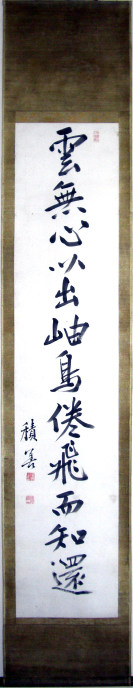 雲無心以出岫鳥倦飛而知還
積善